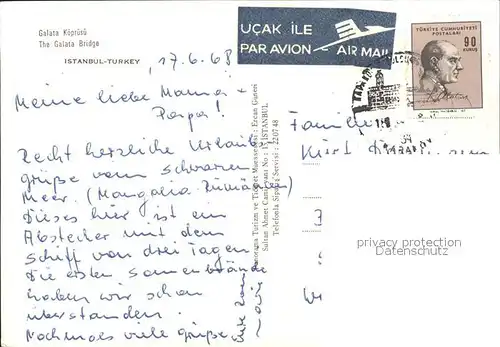 Galata Köprüsü
The Galata Bridge
ISTANBUL-TURKEY
UÇAK İLE
PAR AVION AIR MAIL
TÜRKİYE CUMHURİYETİ
POSTALARI
90
KURUŞ
17.6.68
Meine liebe Mama +
Papa!
Recht herzliche Urlaubs-
grüße vom schwarzen
Meer. (Mangalia Rumänien)
Dieses hier ist ein
Abstecher mit dem
Schiff von drei Tagen.
Die ersten Sonnenbrände
haben wir schon
überstanden.
Nochmals viele Grüße
Panorama Turizm ve Ticaret Müessesesi: Ercan Güneri
Sultan Ahmet Camii No. 13 İSTANBUL
Telefonla Sipariş Servisi: 220748
Familie
Kurt
privacy protection
Datenschutz